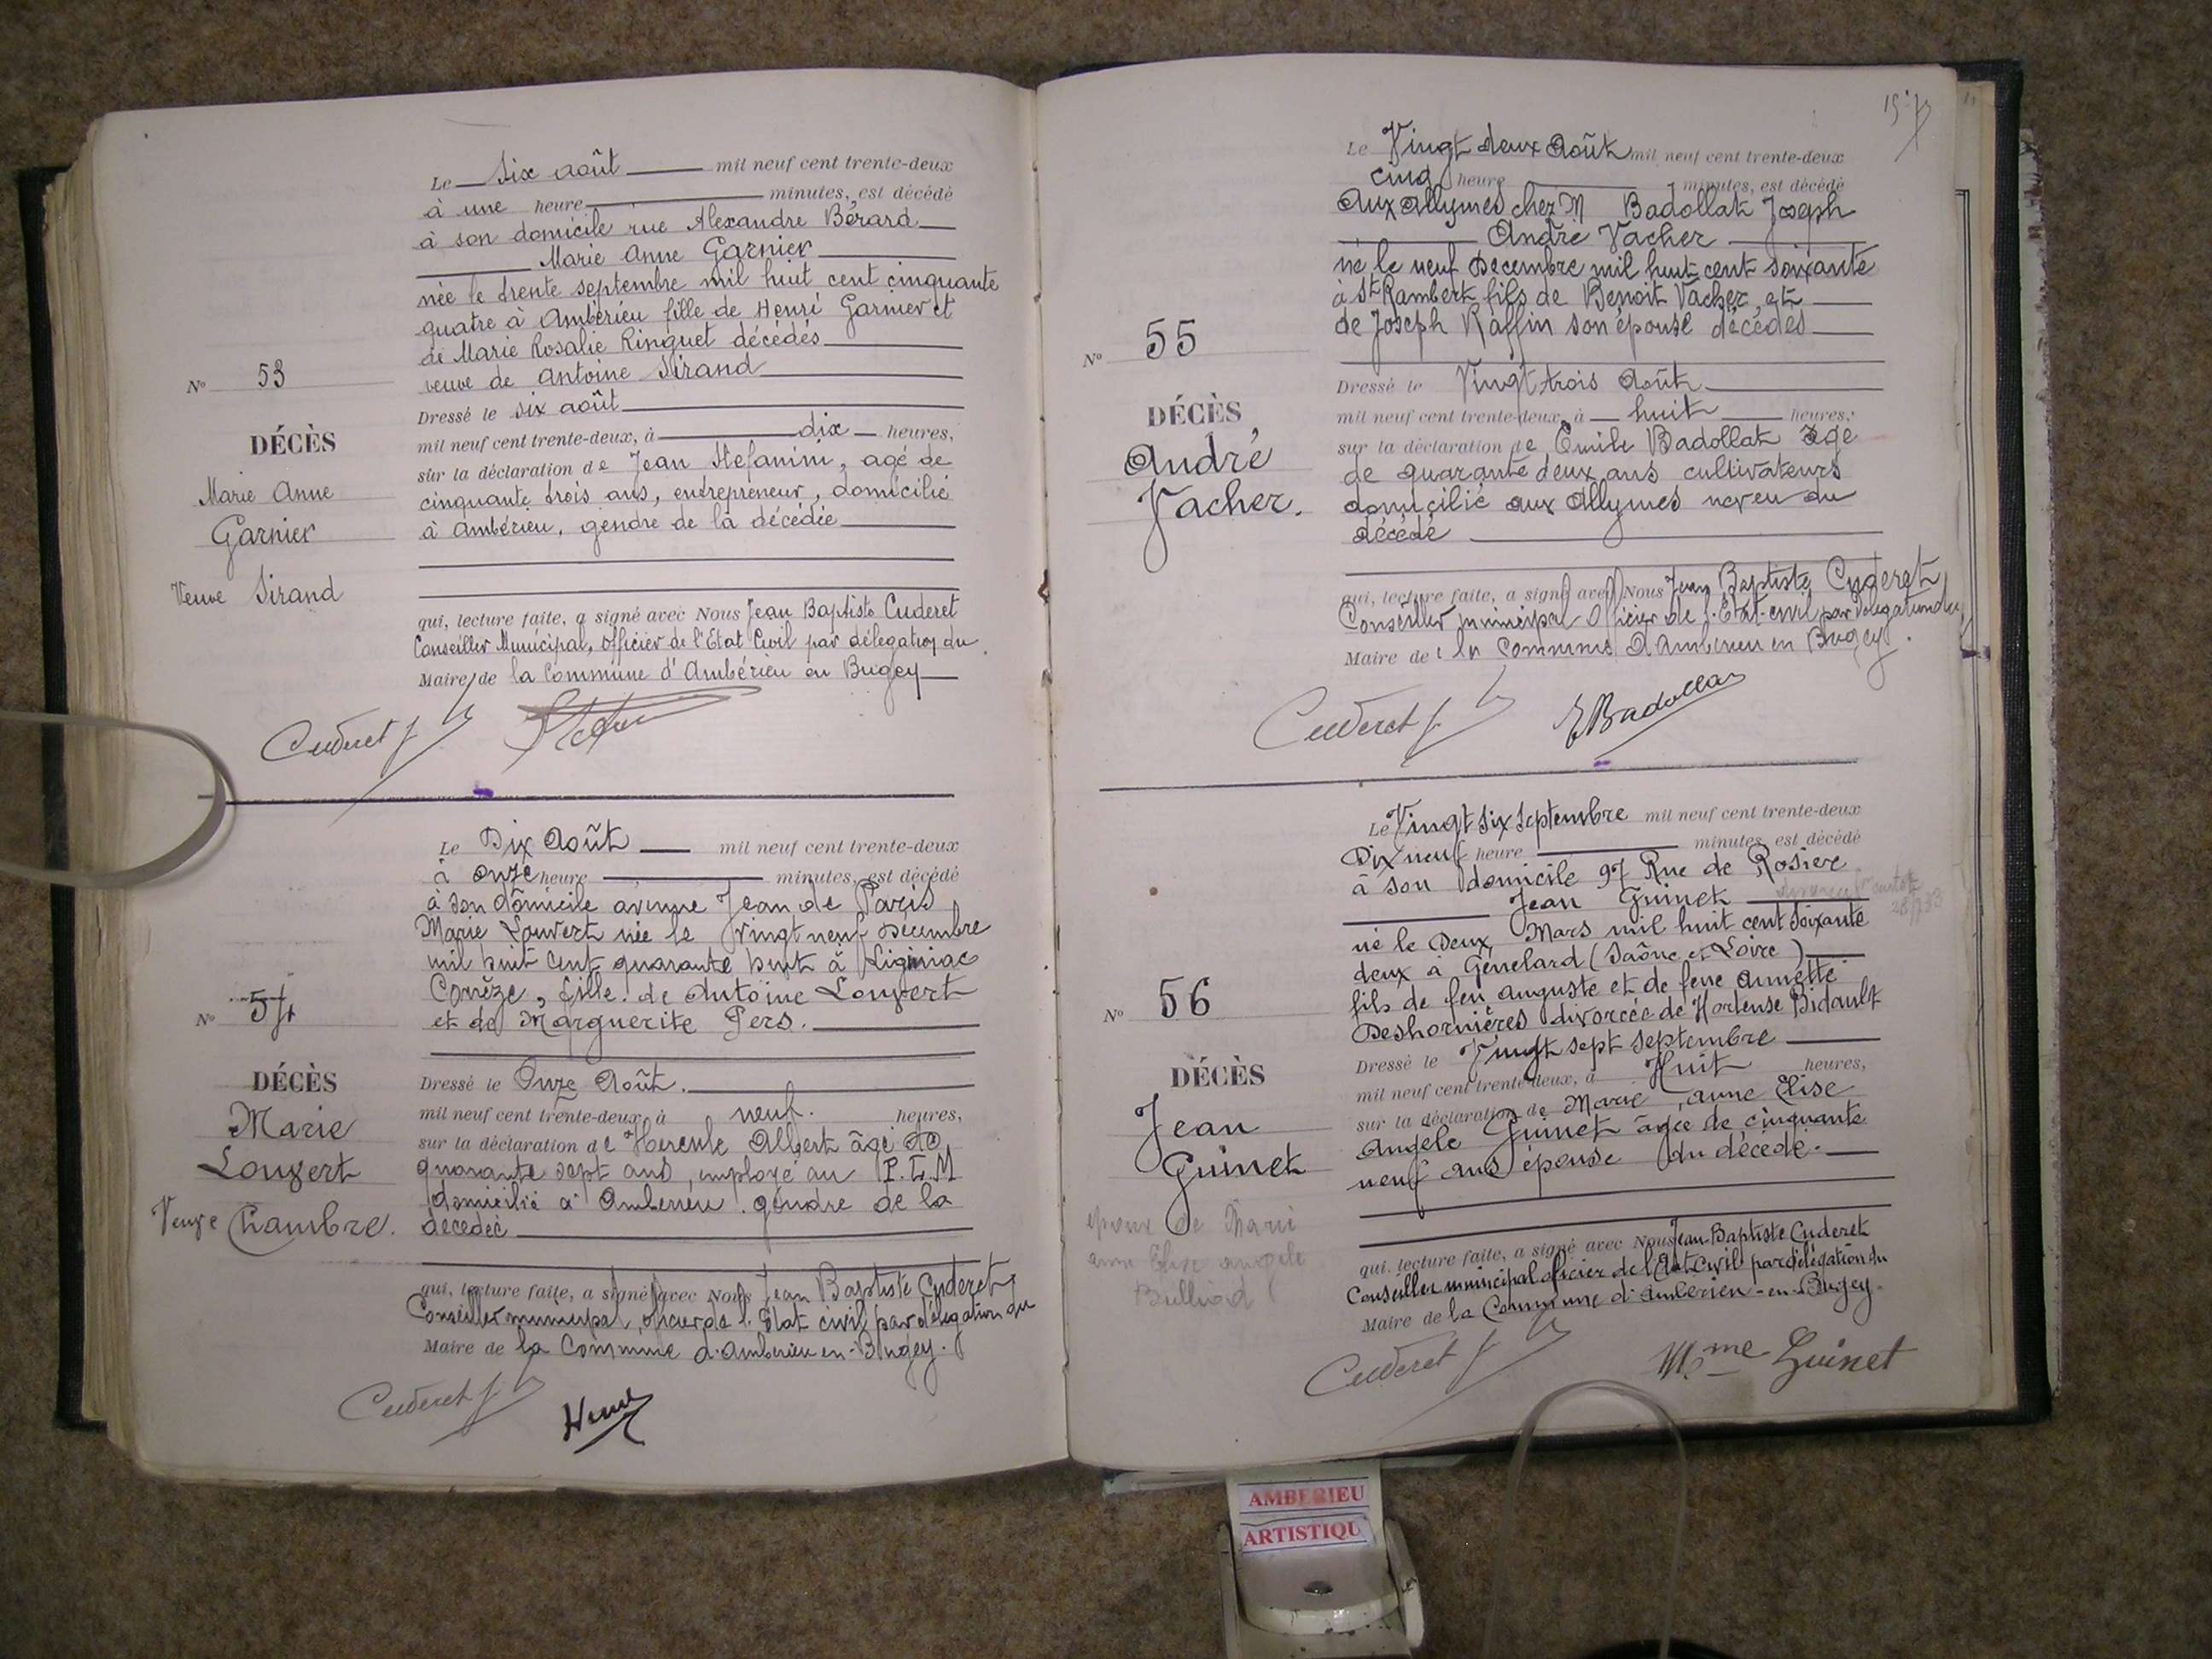 Le Six août mil neuf cent trente-deux
à une heure minutes, est décédé
à son domicile rue Alexandre Bérard
Marie Anne Garnier
née le trente septembre mil huit cent cinquante
quatre à Ambérieu fille de Henri Garnier et
de Marie Rosalie Ringuet décédés
veuve de Antoine Sirand
Dressé le six août
mil neuf cent trente-deux, à dix heures,
sur la déclaration de Jean Stefanini, agé de
cinquante trois ans, entrepreneur, domicilié
à Ambérieu, gendre de la décédée
qui, lecture faite, a signé avec Nous Jean Baptiste Cuderet
Conseiller Municipal, officier de l'Etat Civil par délégation du
Maire de la Commune d'Ambérieu en Bugey
Nº 53
DÉCÈS
Marie Anne
Garnier
Veuve Sirand
Cuderet J
Le Dix Août mil neuf cent trente-deux
à onze heure minutes, est décédé
à son domicile avenue Jean de Paris
Marie Louvert née le Vingt neuf Decembre
mil huit cent quarante huit à Liginiac
Corrèze, fille de Antoine Louvert
et de Marguerite Pers.
Dressé le Onze Août.
mil neuf cent trente-deux, à neuf. heures,
sur la déclaration de Hercule Albert âgé de
quarante sept ans, employé au P.L.M
domicilié à Amberieu. gendre de la
décédée
qui, lecture faite, a signé avec Nous Jean Baptiste Cuderet
Conseiller municipal, officier de l'Etat civil par délégation du
Maire de la Commune d'Amberieu-en-Bugey.
Nº 54
DÉCÈS
Marie
Louvert
Veuve Chambre.
Cuderet J
157
Le Vingt deux Août mil neuf cent trente-deux
cinq heure minutes, est décédé
Aux Allymes chez M Badollat Joseph
André Vacher
né le neuf Decembre mil huit cent soixante
à St Rambert fils de Benoit Vacher et
de Joseph Raffin son épouse décédés
Dressé le Vingt trois Août
mil neuf cent trente-deux, à huit heures,
sur la déclaration de Emile Badollat âgé
de quarante deux ans cultivateurs
domicilié aux Allymes neveu du
décédé
qui, lecture faite, a signé avec Nous Jean Baptiste Cuderet
Conseiller municipal Officier de l'Etat-civil par Délégation du
Maire de la Commune d'Amberieu en Bugey.
Nº 55
DÉCÈS
André
Vacher.
Cuderet J EBadollat
Le Vingt six Septembre mil neuf cent trente-deux
Dix neuf heure minutes, est décédé
à son domicile 97 Rue de Rosier
Jean Guinet
né le Deux Mars mil huit cent soixante
deux à Génelard (Saône et Loire)
fils de feu Auguste et de feue Annette
Deshornières divorcée de Hortense Bidault
Dressé le Vingt sept septembre
mil neuf cent trente-deux, à Huit heures,
sur la déclaration de Marie, Anne Elise
Angele Guinet âgée de cinquante
neuf ans épouse du décédé.
qui, lecture faite, a signé avec Nous Jean-Baptiste Cuderet
Conseiller municipal officier de l'Etat Civil par délégation du
Maire de la Commune d'Amberieu-en-Bugey.
Nº 56
DÉCÈS
Jean
Guinet
époux de Marie
anne Elise angele
Bulliod
Cuderet J Mme Guinet
AMBERIEU
ARTISTIQU